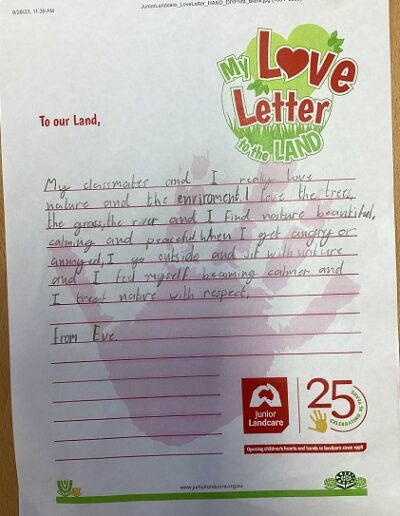 8/28/23, 11:39 AM
My Love
Letter
to the LAND
To our Land,
My classmates and I really love
nature and the enviroment. I love the trees,
the grass, the river and I find nature beautiful,
calming and peaceful. When I get angry or
annoyed, I go outside and sit with nature
and I feel myself becoming calmer and
I treat nature with respect.
From Eve.
Junior
Landcare
25
CELEBRATING 25 YEARS
Opening children's hearts and hands to landcare since 1998
www.juniorlandcare.org.au